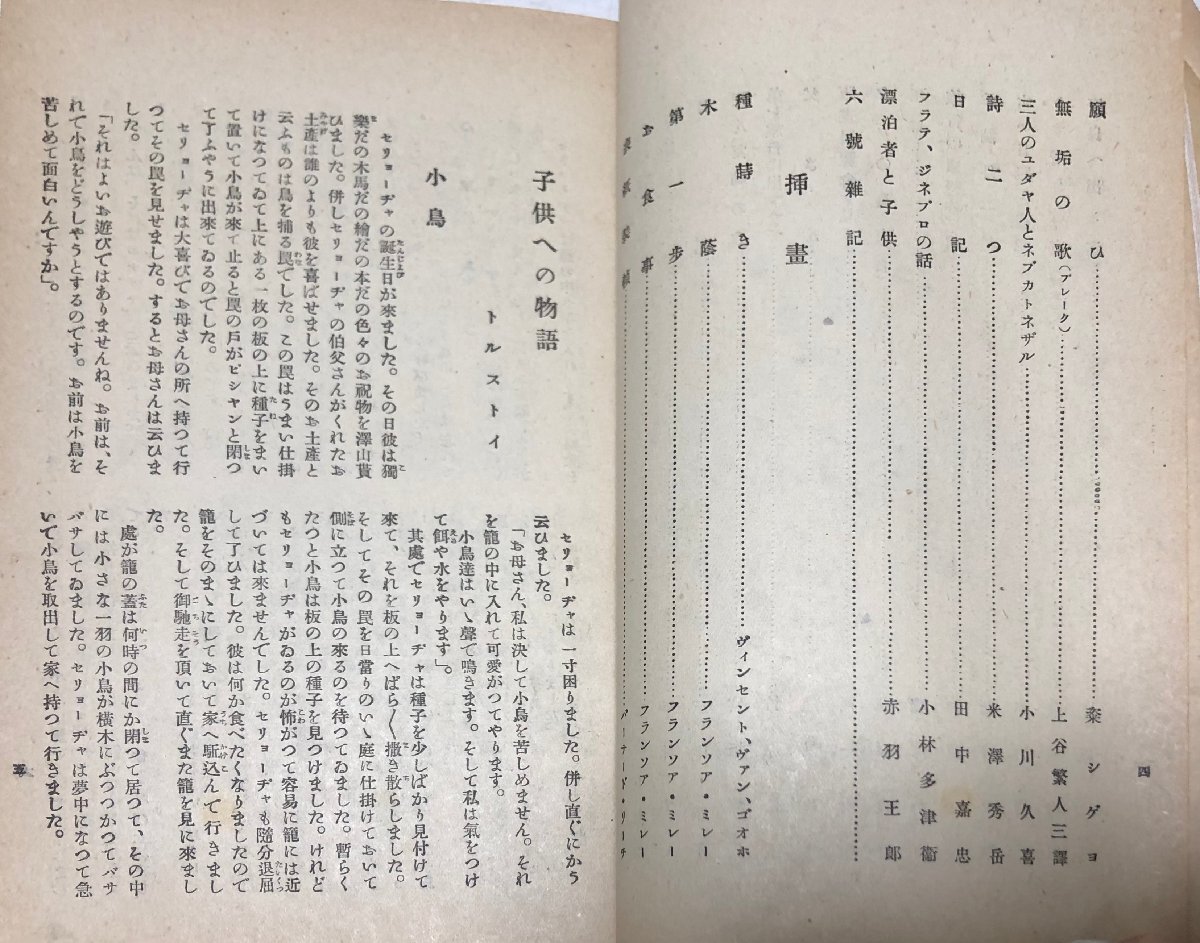 願ひ……………桒シゲヨ
無垢の歌(ブレーク)……………上谷繁人三譯
三人のユダヤ人とネブカトネザル……………小川久喜
詩二つ……………米澤秀岳
日記……………田中嘉忠
フラテ、ジネプロの話……………小林多津衞
漂泊者と子供……………赤羽王郎
六號雜記……………
挿畫
種蒔き……………ヴィンセント、ヴァン、ゴオホ
木蔭……………フランソア・ミレー
第一步……………フランソア・ミレー
お食事……………フランソア・ミレー
バーナード・リーチ
四
子供への物語
トルストイ
小鳥
セリョーヂャの誕生日が來ました。その日彼は獨
樂だの木馬だの繪だの本だの色々のお祝物を澤山貰
ひました。併しセリョーヂャの伯父さんがくれたお
土產は誰のよりも彼を喜ばせました。そのお土產と
云ふものは鳥を捕る罠でした。この罠はうまい仕掛
けになつてゐて上にある一枚の板の上に種子をまい
て置いて小鳥が來て止ると罠の戶がピシャンと閉つ
て了ふやうに出來てゐるのでした。
セリョーヂャは大喜びでお母さんの所へ持つて行
つてその罠を見せました。するとお母さんは云ひま
した。
「それはよいお遊びではありませんね。お前は、そ
れで小鳥をどうしやうとするのです。お前は小鳥を
苦しめて面白いんですか」。
セリョーヂャは一寸困りました。併し直ぐにかう
云ひました。
「お母さん、私は決して小鳥を苦しめません。それ
を籠の中に入れて可愛がつてやります。
小鳥達はいゝ聲で鳴きます。そして私は氣をつけ
て餌や水をやります」。
其處でセリョーヂャは種子を少しばかり見付けて
來て、それを板の上へばら〱撒き散らしました。
そしてその罠を日當りのいゝ庭に仕掛けておいて
側に立つて小鳥の來るのを待つてゐました。暫らく
たつと小鳥は板の上の種子を見つけました。けれど
もセリョーヂャがゐるのが怖がつて容易に籠には近
づいては來ませんでした。セリョーヂャも隨分退屈
して了ひました。彼は何か食べたくなりましたので
籠をそのまゝにしておいて家へ駈込んで行きまし
た。そして御馳走を頂いて直ぐまた籠を見に來まし
た。
處が籠の蓋は何時の間にか閉つて居つて、その中
には小さな一羽の小鳥が橫木にぶつつかつてバサ
バサしてゐました。セリョーヂャは夢中になつて急
いで小鳥を取出して家へ持つて行きました。
五